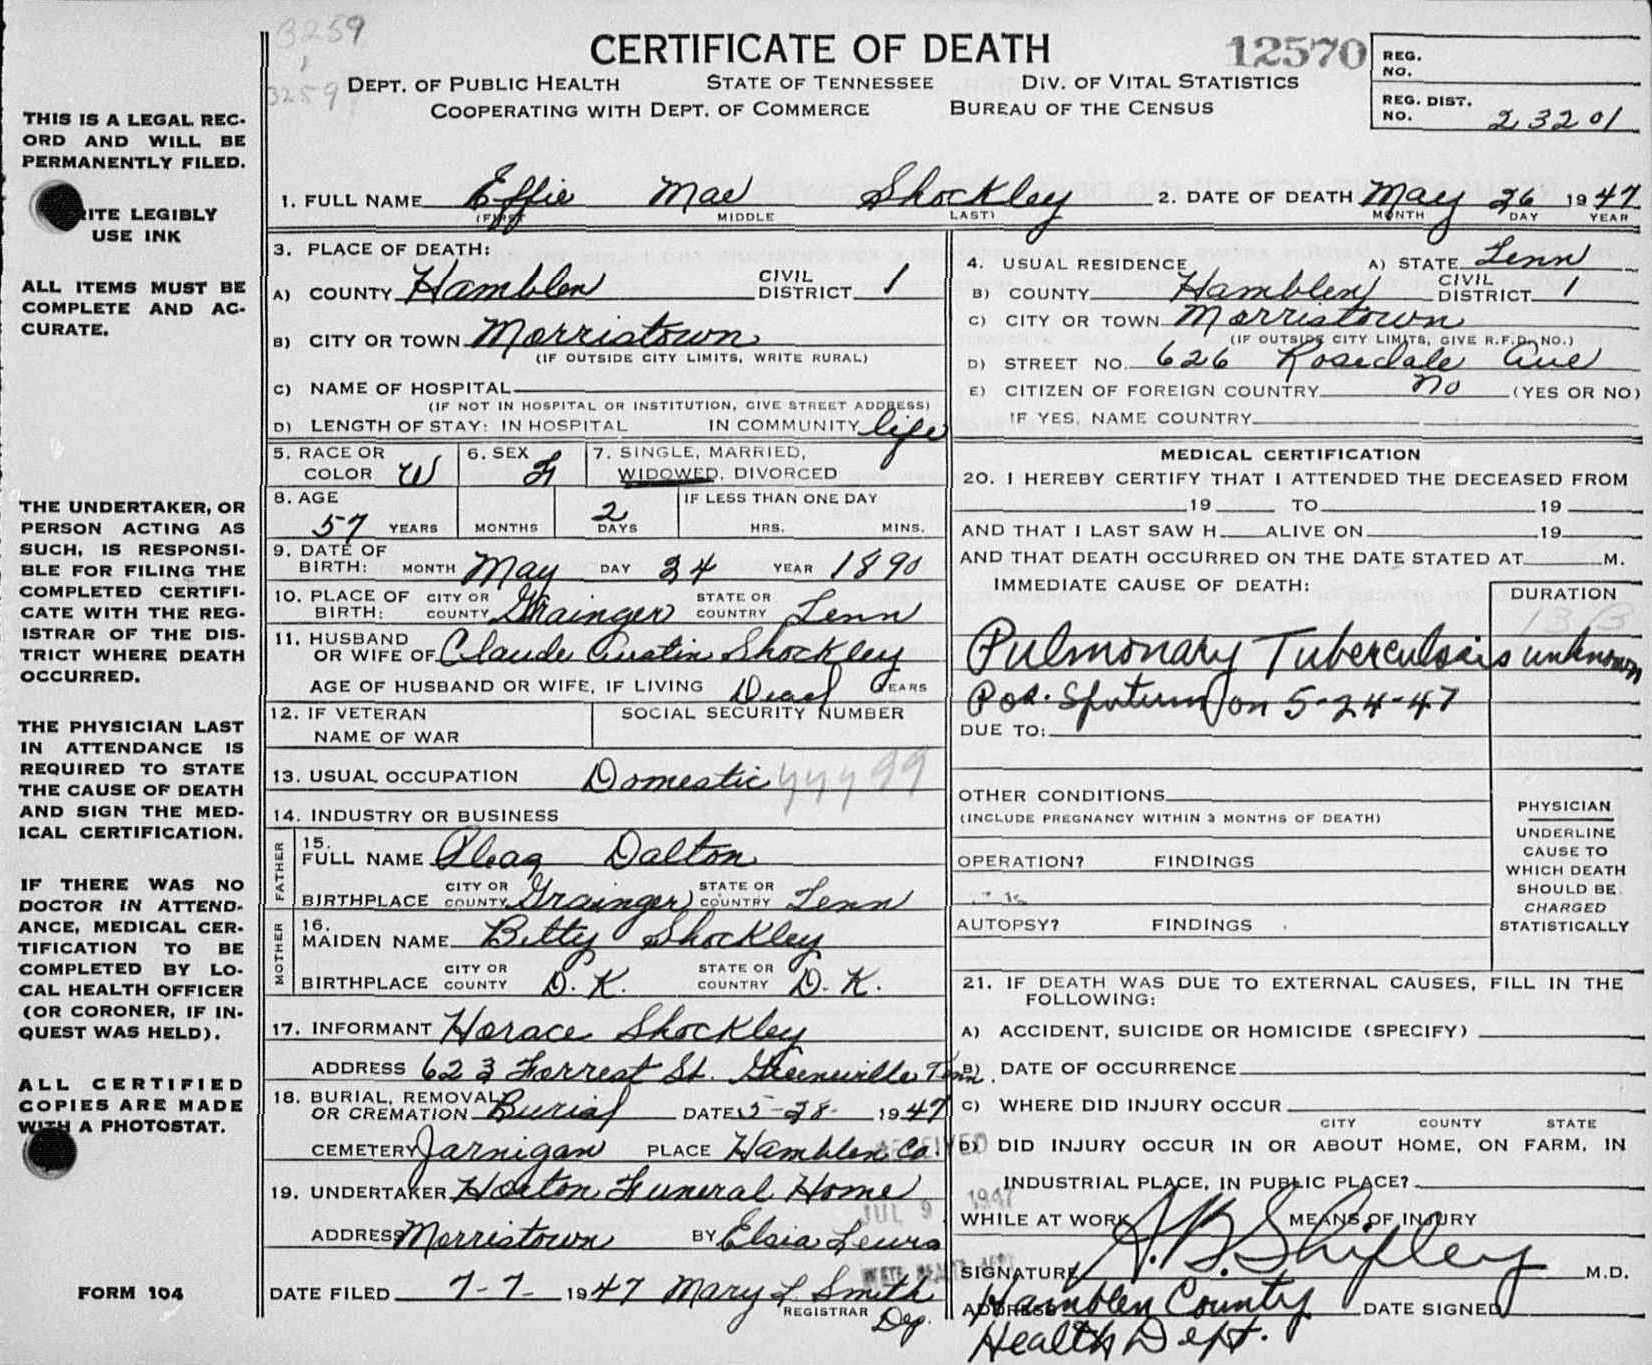 3259
3259
CERTIFICATE OF DEATH
12570
DEPT. OF PUBLIC HEALTH STATE OF TENNESSEE DIV. OF VITAL STATISTICS
COOPERATING WITH DEPT. OF COMMERCE BUREAU OF THE CENSUS
REG. NO.
REG. DIST. NO. 23201
THIS IS A LEGAL REC-
ORD AND WILL BE
PERMANENTLY FILED.
RITE LEGIBLY
USE INK
ALL ITEMS MUST BE
COMPLETE AND AC-
CURATE.
THE UNDERTAKER, OR
PERSON ACTING AS
SUCH, IS RESPONSI-
BLE FOR FILING THE
COMPLETED CERTIFI-
CATE WITH THE REG-
ISTRAR OF THE DIS-
TRICT WHERE DEATH
OCCURRED.
THE PHYSICIAN LAST
IN ATTENDANCE IS
REQUIRED TO STATE
THE CAUSE OF DEATH
AND SIGN THE MED-
ICAL CERTIFICATION.
IF THERE WAS NO
DOCTOR IN ATTEND-
ANCE, MEDICAL CER-
TIFICATION TO BE
COMPLETED BY LO-
CAL HEALTH OFFICER
(OR CORONER, IF IN-
QUEST WAS HELD).
ALL CERTIFIED
COPIES ARE MADE
WITH A PHOTOSTAT.
FORM 104
1. FULL NAME Effie Mae Shockley 2. DATE OF DEATH May 26 1947
(FIRST MIDDLE LAST) MONTH DAY YEAR
3. PLACE OF DEATH:
A) COUNTY Hamblen CIVIL DISTRICT 1
B) CITY OR TOWN Morristown
(IF OUTSIDE CITY LIMITS, WRITE RURAL)
C) NAME OF HOSPITAL
(IF NOT IN HOSPITAL OR INSTITUTION, GIVE STREET ADDRESS)
D) LENGTH OF STAY: IN HOSPITAL IN COMMUNITY life
5. RACE OR COLOR W 6. SEX F 7. SINGLE, MARRIED, WIDOWED, DIVORCED
8. AGE 57 YEARS MONTHS 2 DAYS IF LESS THAN ONE DAY HRS. MINS.
9. DATE OF BIRTH: MONTH May DAY 24 YEAR 1890
10. PLACE OF BIRTH: CITY OR COUNTY Grainger STATE OR COUNTRY Tenn
11. HUSBAND OR WIFE OF Claude Austin Shockley
AGE OF HUSBAND OR WIFE, IF LIVING Dead YEARS
12. IF VETERAN NAME OF WAR SOCIAL SECURITY NUMBER
13. USUAL OCCUPATION Domestic
14. INDUSTRY OR BUSINESS
FATHER
15. FULL NAME Pleag Dalton
BIRTHPLACE CITY OR COUNTY Grainger STATE OR COUNTRY Tenn
MOTHER
16. MAIDEN NAME Betty Shockley
BIRTHPLACE CITY OR COUNTY D.K. STATE OR COUNTRY D.K.
17. INFORMANT Horace Shockley
ADDRESS 623 Forrest St. Greenville Tenn.
18. BURIAL, REMOVAL OR CREMATION Burial DATE 5-28- 1947
CEMETERY Jarnigan PLACE Hamblen Co.
19. UNDERTAKER Horton Funeral Home
ADDRESS Morristown BY Elsia Lewis
DATE FILED 7-7- 1947 Mary L. Smith
REGISTRAR Dep.
RECEIVED
JUL 9 1947
4. USUAL RESIDENCE A) STATE Tenn
B) COUNTY Hamblen CIVIL DISTRICT 1
C) CITY OR TOWN Morristown
(IF OUTSIDE CITY LIMITS, GIVE R.F.D. NO.)
D) STREET NO. 626 Rosedale Ave
E) CITIZEN OF FOREIGN COUNTRY no (YES OR NO)
IF YES, NAME COUNTRY
MEDICAL CERTIFICATION
20. I HEREBY CERTIFY THAT I ATTENDED THE DECEASED FROM
19 TO 19
AND THAT I LAST SAW H ALIVE ON 19
AND THAT DEATH OCCURRED ON THE DATE STATED AT M.
IMMEDIATE CAUSE OF DEATH: DURATION
13 B
Pulmonary Tuberculosis unknown
Pos. Sputum on 5-24-47
DUE TO:
OTHER CONDITIONS
(INCLUDE PREGNANCY WITHIN 3 MONTHS OF DEATH)
OPERATION? FINDINGS
AUTOPSY? FINDINGS
PHYSICIAN
UNDERLINE
CAUSE TO
WHICH DEATH
SHOULD BE
CHARGED
STATISTICALLY
21. IF DEATH WAS DUE TO EXTERNAL CAUSES, FILL IN THE
FOLLOWING:
A) ACCIDENT, SUICIDE OR HOMICIDE (SPECIFY)
B) DATE OF OCCURRENCE
C) WHERE DID INJURY OCCUR
CITY COUNTY STATE
D) DID INJURY OCCUR IN OR ABOUT HOME, ON FARM, IN
INDUSTRIAL PLACE, IN PUBLIC PLACE?
WHILE AT WORK MEANS OF INJURY
SIGNATURE A.B. Shipley M.D.
ADDRESS Hamblen County DATE SIGNED
Health Dept.